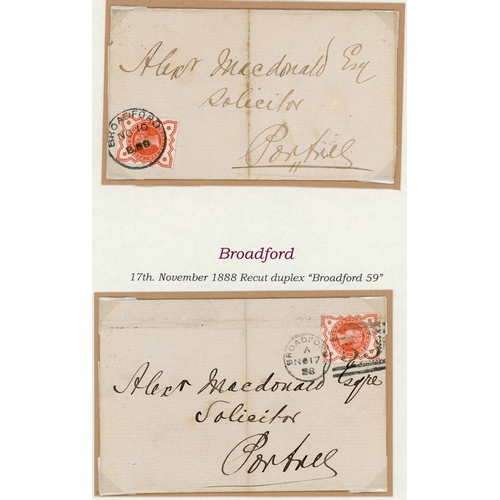 Alexr Macdonald Esq
Solicitor
Portree
BROADFORD
NO 10
88
Broadford
17th. November 1888 Recut duplex “Broadford 59”
BROADFORD
A
NO 17
88
Alexr Macdonald Esqre
Solicitor
Portree